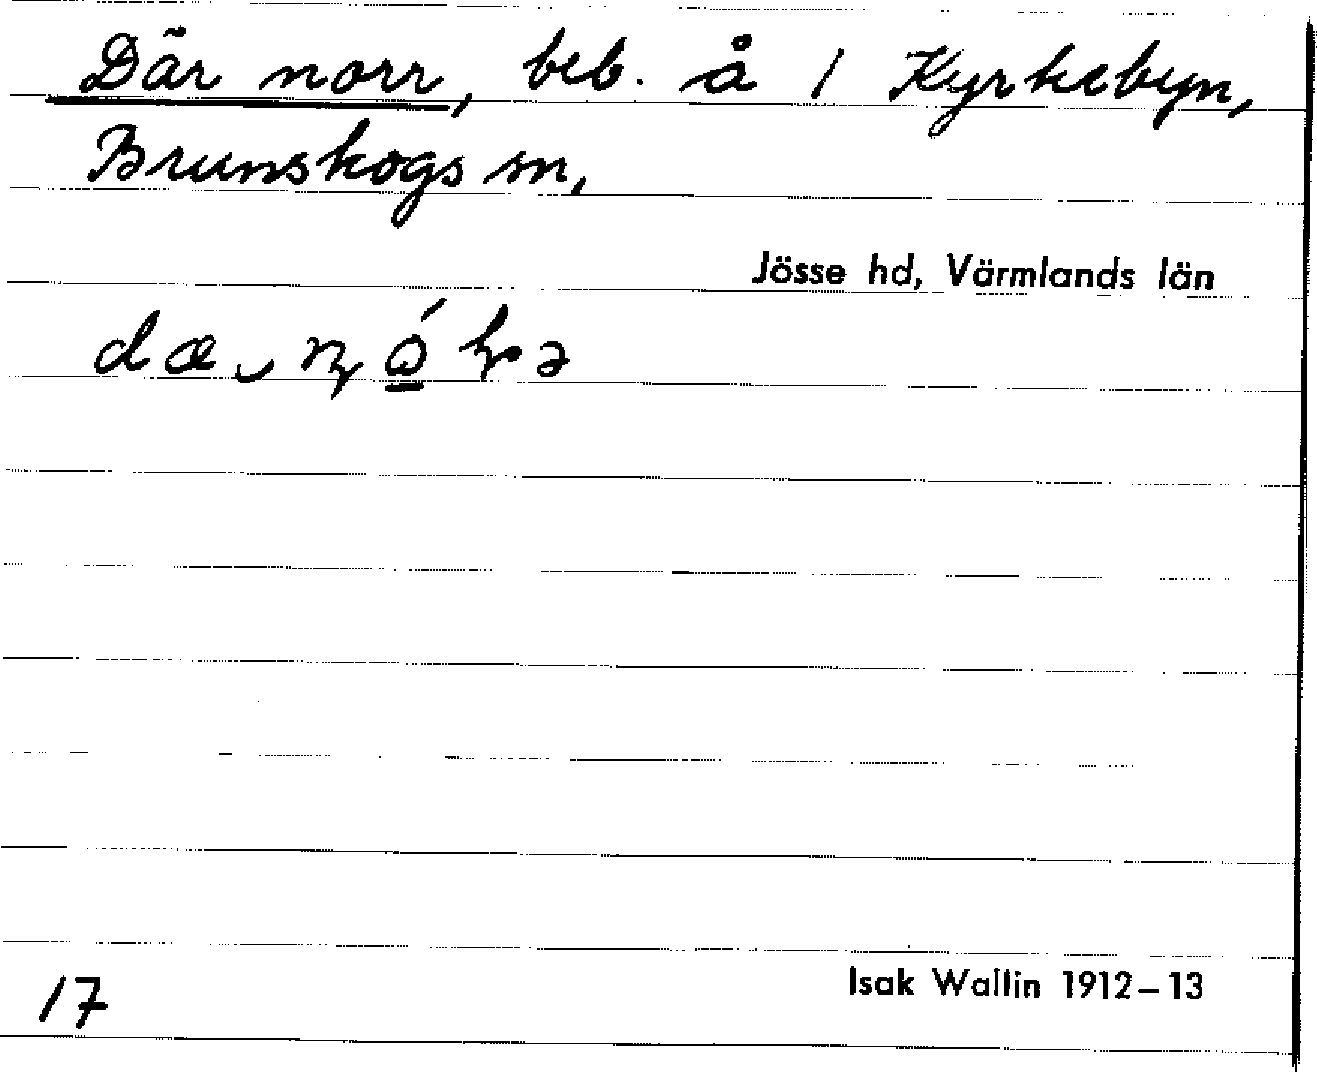 Där norr, beb. å 1 Kyrkebyn,
Brunskogs sn,
Jösse hd, Värmlands län
17
Isak Wallin 1912–13